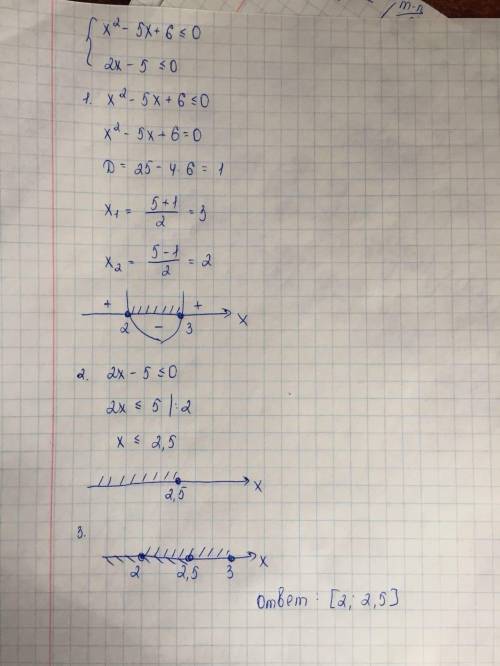 x² - 5x + 6 ≤ 0
2x - 5 ≤ 0
1. x² - 5x + 6 ≤ 0
x² - 5x + 6 = 0
D = 25 - 4·6 = 1
x₁ = (5+1)/2 = 3
x₂ = (5-1)/2 = 2
+ - +
2 3 x
2. 2x - 5 ≤ 0
2x ≤ 5 |:2
x ≤ 2,5
2,5 x
3.
2 2,5 3 x
Ответ: [2; 2,5]